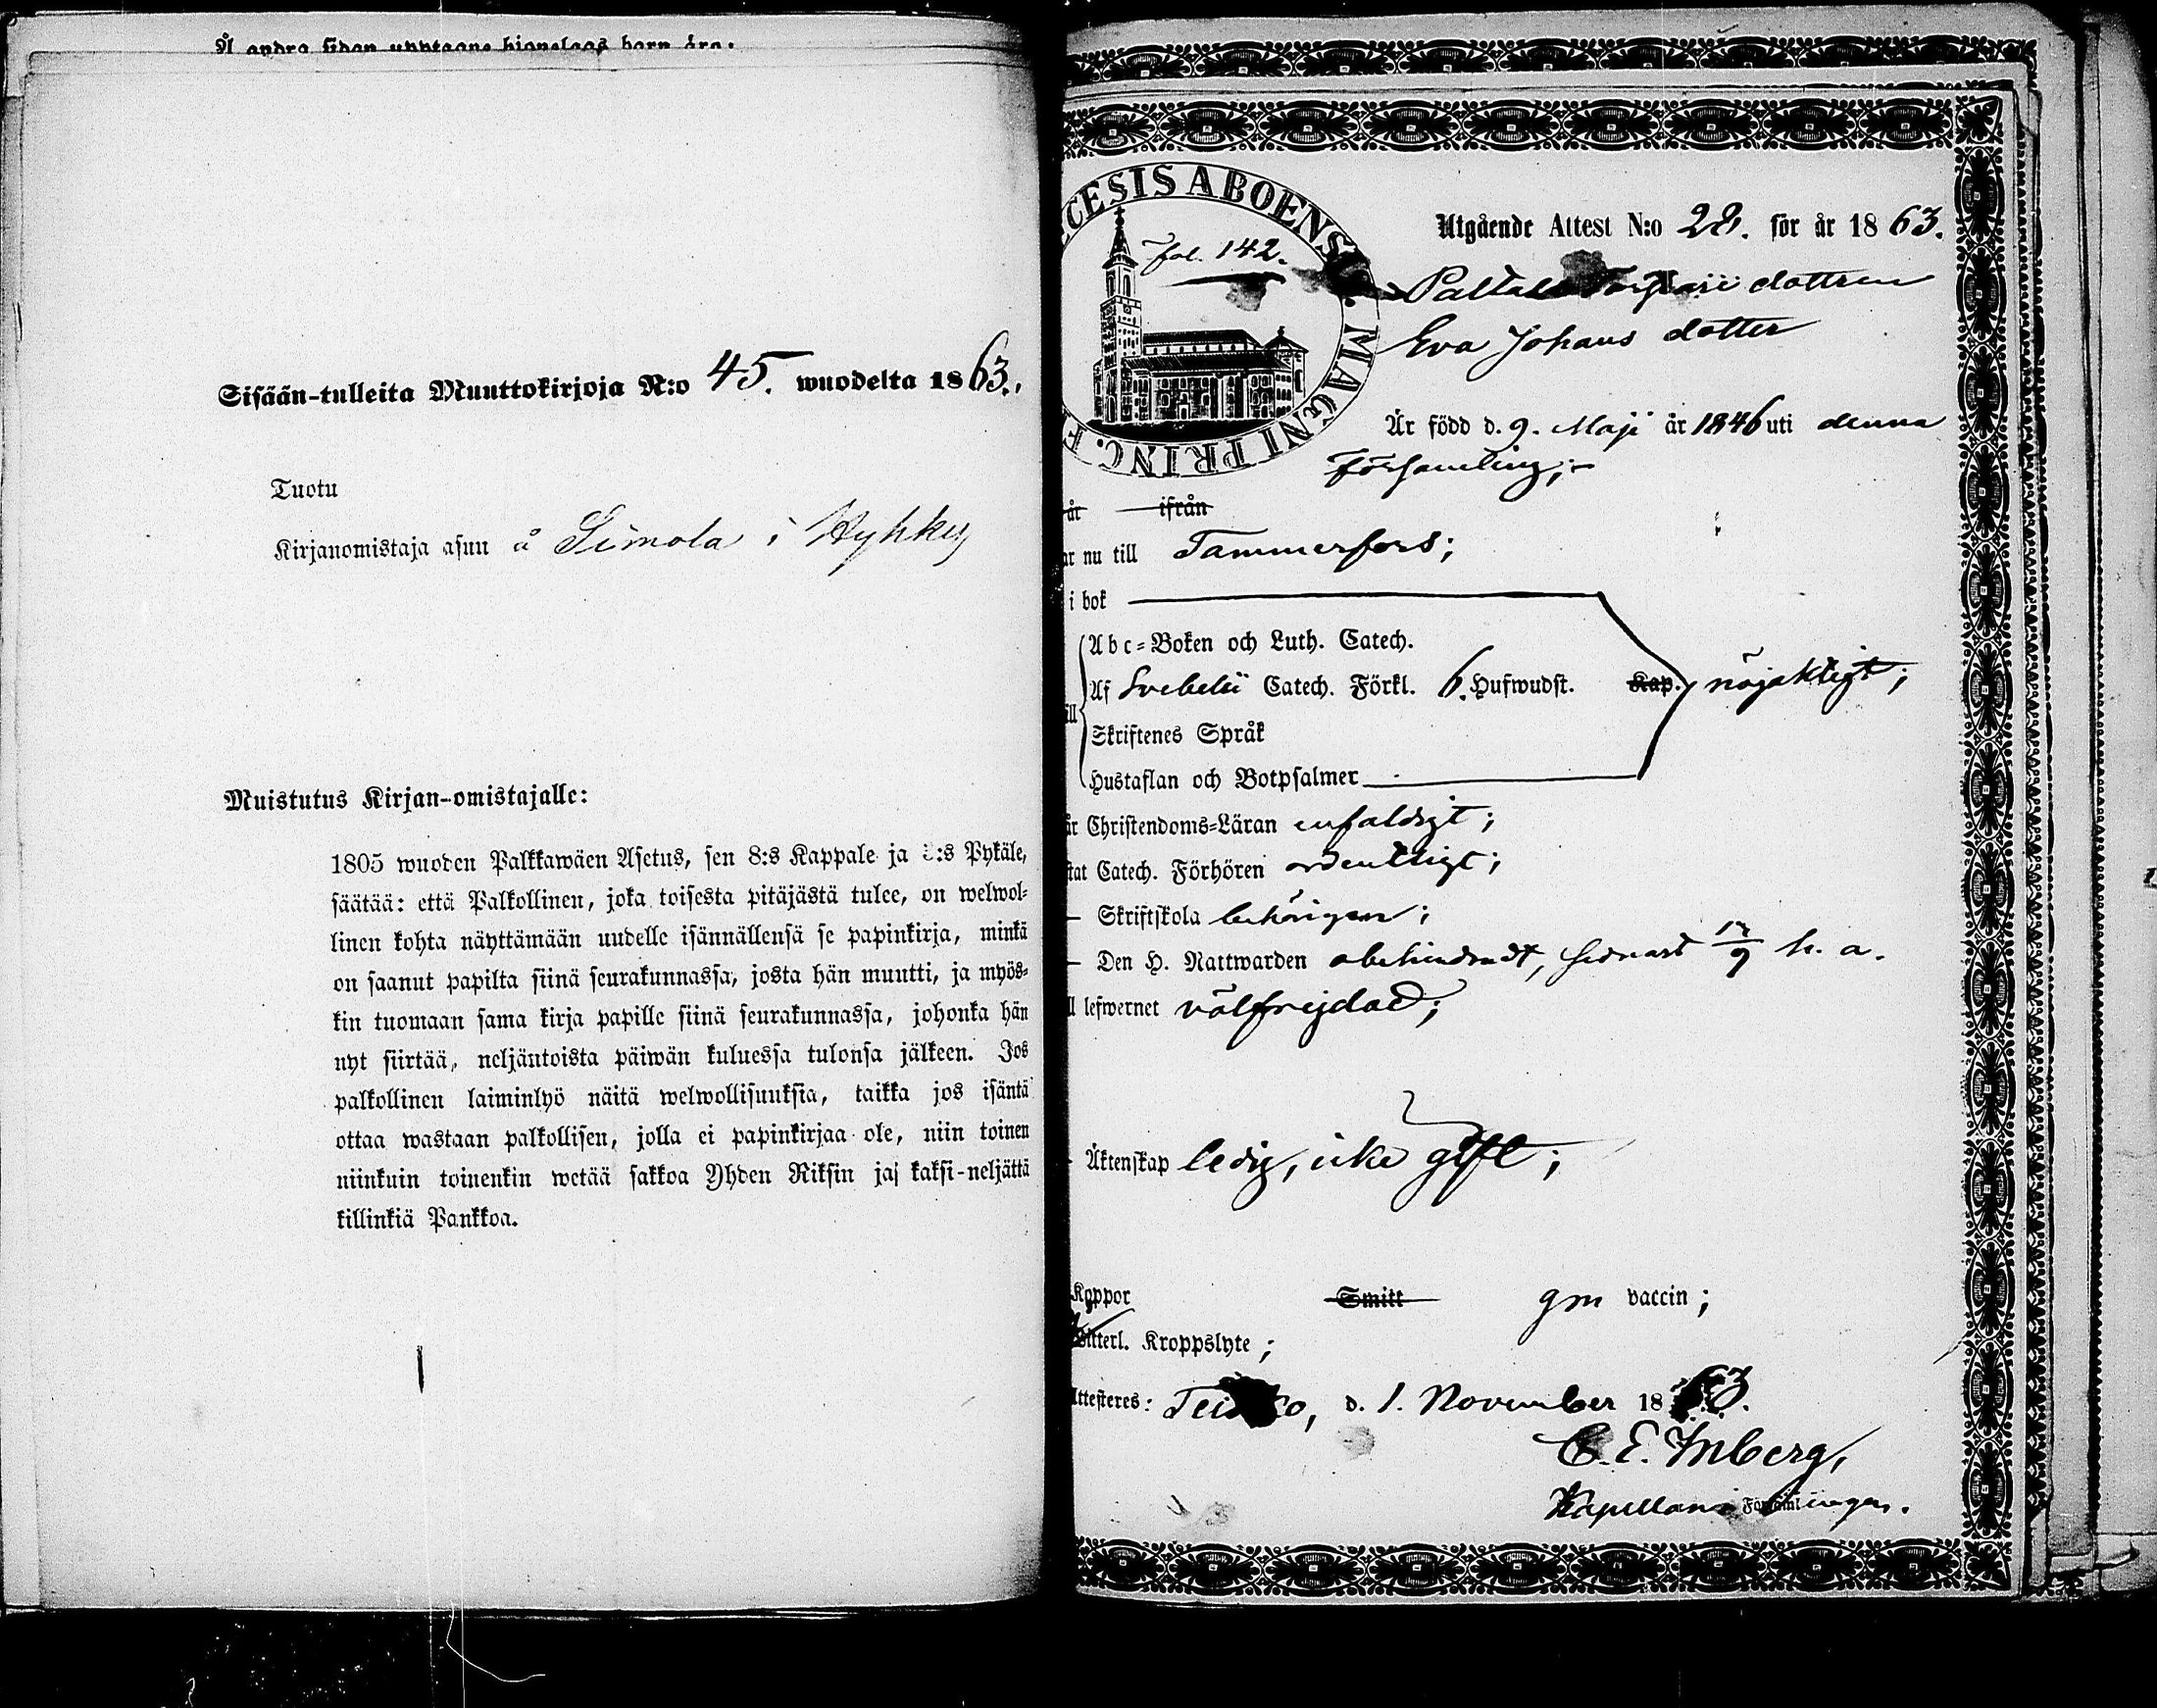 Å andra sidan upptagne hionelags barn äro:
Sisään-tulleita Muuttokirjoja N:o 45. wuodelta 1863.,
Tuotu
Kirjanomistaja asuu å Simola i Hyhky
Muistutus Kirjan-omistajalle:
1805 wuoden Palkkawäen Asetus, sen 8:s Kappale ja :s Pykäle,
säätää: että Palkollinen, joka toisesta pitäjästä tulee, on welwol-
linen kohta näyttämään uudelle isännällensä se papinkirja, minkä
on saanut papilta siinä seurakunnassa, josta hän muutti, ja myös-
kin tuomaan sama kirja papille siinä seurakunnassa, johonka hän
nyt siirtää, neljäntoista päiwän kuluessa tulonsa jälkeen. Jos
palkollinen laiminlyö näitä welwollisuuksia, taikka jos isäntä
ottaa wastaan palkollisen, jolla ei papinkirjaa ole, niin toinen
niinkuin toinenkin wetää sakkoa Yhden Riksin ja kaksi-neljättä
killinkiä Pankkoa.
CESIS ABOENS. MAGNI PRINC. F
fol. 142.
Utgående Attest N:o 28. för år 1863.
dottren
Eva Johans dotter
Är född d. 9. Maji år 1846 uti denna
församling;
år ifrån
ar nu till Tammerfors;
i bok
Abc-Boken och Luth. Catech.
Af Svebelii Catech. Förkl. 6. Hufwudst. Kap. nöjaktigt;
ill
Skriftenes Språk
Hustaflan och Botpsalmer
år Christendoms-Läran enfaldigt;
stat Catech. Förhören ordentligt;
– Skriftskola behörigen;
– Den H. Nattwarden obehindradt, senast 13/9 h. a.
ll lefwernet välfrejdad;
– Äktenskap ledig, icke gift;
Koppor Smitt gm vaccin;
Witterl. Kroppslyte;
Attesteres: Teisko, d. 1. November 1863.
C. E. Inberg,
Kapellan i Församlingen.